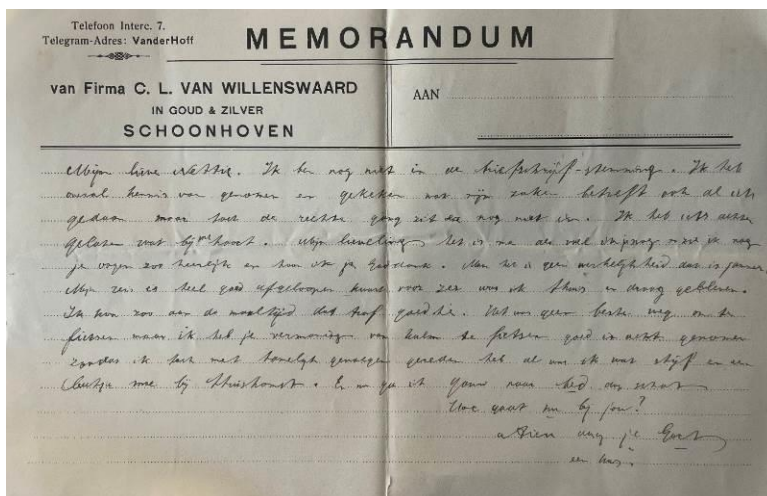 Telefoon Interc. 7.
Telegram-Adres: VanderHoff
MEMORANDUM
van Firma C. L. VAN WILLENSWAARD
IN GOUD & ZILVER
SCHOONHOVEN
AAN
Mijn lieve . Ik ben nog niet in de briefschrijf-stemming. Ik heb
overal kennis van genomen en gekeken wat mijn zaken betreft ook al iets
gedaan maar toch de rechte gang zit er nog niet in. Ik heb iets achter
gelaten wat bij hoort. Mijn lieveling het is me als ik nog
je oogen zoo heerlijk en hoor ik je . Maar het is geen werkelijkheid dat is jammer.
Mijn reis is heel goed afgeloopen voor zes was ik thuis en droog gebleven.
Ik kon zoo aan de maaltijd dat trof goed hé. Het was geen beste weg om te
fietsen maar ik heb je vermaningen van kalm te fietsen goed in acht genomen
zoodat ik toch met genoegen gereden heb al was ik wat stijf en een
beetje moe bij thuiskomst. En nu ga ik gauw naar bed dag schat
Hoe gaat nu bij jou?
dag je
een kus.